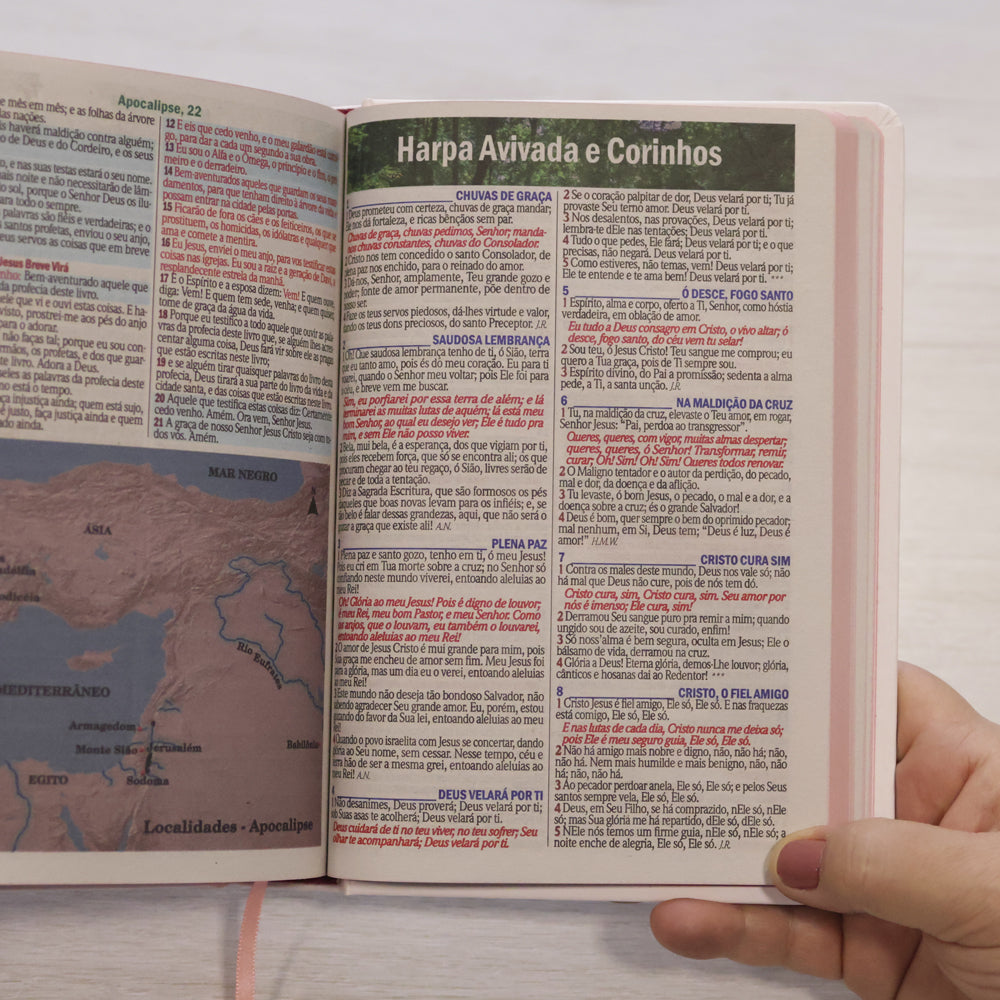 Apocalipse, 22
e mês em mês; e as folhas da árvore
das nações.
is haverá maldição contra alguém;
o de Deus e do Cordeiro, e os seus
o, e nas suas testas estará o seu nome.
mais noite e não necessitarão de lâm-
do sol, porque o Senhor Deus os ilu-
para todo o sempre.
palavras são fiéis e verdadeiras; e o
santos profetas, enviou o seu anjo,
seus servos as coisas que em breve
Jesus Breve Virá
nho: Bem-aventurado aquele que
da profecia deste livro.
ele que vi e ouvi estas coisas. E ha-
visto, prostrei-me aos pés do anjo
para o adorar.
não faças tal; porque eu sou con-
irmãos, os profetas, e dos que guar-
te livro. Adora a Deus.
seles as palavras da profecia deste
no está o tempo.
ça injustiça ainda; quem está sujo,
é justo, faça justiça ainda e quem
ado ainda.
12 E eis que cedo venho, e o meu galardão está comi-
go, para dar a cada um segundo a sua obra.
13 Eu sou o Alfa e o Ômega, o princípio e o fim, o pri-
meiro e o derradeiro.
14 Bem-aventurados aqueles que guardam os seus man-
damentos, para que tenham direito à árvore da vida e
possam entrar na cidade pelas portas.
15 Ficarão de fora os cães e os feiticeiros, os que se
prostituem, os homicidas, os idólatras e qualquer que
ama e comete a mentira.
16 Eu, Jesus, enviei o meu anjo, para vos testificar estas
coisas nas igrejas. Eu sou a raiz e a geração de Davi, a
resplandecente estrela da manhã.
17 E o Espírito e a esposa dizem: Vem! E quem ouve,
diga: Vem! E quem tem sede, venha; e quem quiser,
tome de graça da água da vida.
18 Porque eu testifico a todo aquele que ouvir as pala-
vras da profecia deste livro que, se alguém lhes acres-
centar alguma coisa, Deus fará vir sobre ele as pragas
que estão escritas neste livro;
19 e se alguém tirar quaisquer palavras do livro desta
profecia, Deus tirará a sua parte do livro da vida, e da
cidade santa, e das coisas que estão escritas neste livro.
20 Aquele que testifica estas coisas diz: Certamente
cedo venho. Amém. Ora vem, Senhor Jesus.
21 A graça de nosso Senhor Jesus Cristo seja com to-
dos vós. Amém.
MAR NEGRO
ÁSIA
adélfia
odicéia
MEDITERRÂNEO
Rio Eufrates
Armagedom
Monte Sião
Jerusalém
Babilônia
EGITO
Sodoma
Localidades - Apocalipse
Harpa Avivada e Corinhos
CHUVAS DE GRAÇA
Deus prometeu com certeza, chuvas de graça mandar;
Ele nos dá fortaleza, e ricas bênçãos sem par.
Chuvas de graça, chuvas pedimos, Senhor; manda-
nos chuvas constantes, chuvas do Consolador.
Cristo nos tem concedido o santo Consolador, de
plena paz nos enchido, para o reinado do amor.
Dá-nos, Senhor, amplamente, Teu grande gozo e
poder; fonte de amor permanente, põe dentro de
nosso ser.
4 Faze os teus servos piedosos, dá-lhes virtude e valor,
dando os teus dons preciosos, do santo Preceptor. J.R.
2 SAUDOSA LEMBRANÇA
1 Oh! Que saudosa lembrança tenho de ti, ó Sião, terra
que eu tanto amo, pois és do meu coração. Eu para ti
voarei, quando o Senhor meu voltar; pois Ele foi para
o céu, e breve vem me buscar.
Sim, eu porfiarei por essa terra de além; e lá
terminarei as muitas lutas de aquém; lá está meu
bom Senhor, ao qual eu desejo ver; Ele é tudo pra
mim, e sem Ele não posso viver.
2 Bela, mui bela, é a esperança, dos que vigiam por ti,
pois eles recebem força, que só se encontra ali; os que
procuram chegar ao teu regaço, ó Sião, livres serão de
pecar e de toda a tentação.
3 Diz a Sagrada Escritura, que são formosos os pés
daqueles que boas novas levam para os infiéis; e, se
tão belo é falar dessas grandezas, aqui, que não será o
gozar a graça que existe ali! A.N.
3 PLENA PAZ
1 Plena paz e santo gozo, tenho em ti, ó meu Jesus!
Pois eu cri em Tua morte sobre a cruz; no Senhor só
confiando neste mundo viverei, entoando aleluias ao
meu Rei!
Oh! Glória ao meu Jesus! Pois é digno de louvor;
é meu Rei, meu bom Pastor, e meu Senhor. Como
os anjos, que o louvam, eu também o louvarei,
entoando aleluias ao meu Rei!
2 O amor de Jesus Cristo é mui grande para mim, pois
Sua graça me encheu de amor sem fim. Meu Jesus foi
para a glória, mas um dia eu o verei, entoando aleluias
ao meu Rei!
3 Este mundo não deseja tão bondoso Salvador, não
sabendo agradecer Seu grande amor. Eu, porém, estou
gozando do favor da Sua lei, entoando aleluias ao meu
Rei!
4 Quando o povo israelita com Jesus se concertar, dando
glória ao Seu nome, sem cessar. Nesse tempo, céu e
terra hão de ser a mesma grei, entoando aleluias ao
meu Rei! A.N.
4 DEUS VELARÁ POR TI
1 Não desanimes, Deus proverá; Deus velará por ti;
sob Suas asas te acolherá; Deus velará por ti.
Deus cuidará de ti no teu viver, no teu sofrer; Seu
olhar te acompanhará; Deus velará por ti.
2 Se o coração palpitar de dor, Deus velará por ti; Tu já
provaste Seu terno amor. Deus velará por ti.
3 Nos desalentos, nas provações, Deus velará por ti;
lembra-te dEle nas tentações; Deus velará por ti.
4 Tudo o que pedes, Ele fará; Deus velará por ti; e o que
precisas, não negará. Deus velará por ti.
5 Como estiveres, não temas, vem! Deus velará por ti;
Ele te entende e te ama bem! Deus velará por ti. ***
5 Ó DESCE, FOGO SANTO
1 Espírito, alma e corpo, oferto a Ti, Senhor, como hóstia
verdadeira, em oblação de amor.
Eu tudo a Deus consagro em Cristo, o vivo altar; ó
desce, fogo santo, do céu vem tu selar!
2 Sou teu, ó Jesus Cristo! Teu sangue me comprou; eu
quero a Tua graça, pois de Ti sempre sou.
3 Espírito divino, do Pai a promissão; sedenta a alma
pede, a Ti, a santa unção. J.R.
6 NA MALDIÇÃO DA CRUZ
1 Tu, na maldição da cruz, elevaste o Teu amor, em rogar,
Senhor Jesus: "Pai, perdoa ao transgressor".
Queres, queres, com vigor, muitas almas despertar;
queres, queres, ó Senhor! Transformar, remir,
curar; Oh! Sim! Oh! Sim! Queres todos renovar.
2 O Maligno tentador e o autor da perdição, do pecado,
mal e dor, da doença e da aflição.
3 Tu levaste, ó bom Jesus, o pecado, o mal e a dor, e a
doença sobre a cruz; és o grande Salvador!
4 Deus é bom, quer sempre o bem do oprimido pecador;
mal nenhum, em Si, Deus tem; "Deus é luz, Deus é
amor!" H.M.W.
7 CRISTO CURA SIM
1 Contra os males deste mundo, Deus nos vale só; não
há mal que Deus não cure, pois de nós tem dó.
Cristo cura, sim, Cristo cura, sim. Seu amor por
nós é imenso; Ele cura, sim!
2 Derramou Seu sangue puro pra remir a mim; quando
ungido sou de azeite, sou curado, enfim!
3 Só noss'alma é bem segura, oculta em Jesus; Ele o
bálsamo de vida, derramou na cruz.
4 Glória a Deus! Eterna glória, demos-Lhe louvor; glória,
cânticos e hosanas dai ao Redentor! ***
8 CRISTO, O FIEL AMIGO
1 Cristo Jesus é fiel amigo, Ele só, Ele só. E nas fraquezas
está comigo, Ele só, Ele só.
E nas lutas de cada dia, Cristo nunca me deixa só;
pois Ele é meu seguro guia, Ele só, Ele só.
2 Não há amigo mais nobre e digno, não, não há; não,
não há. Nem mais humilde e mais benigno, não, não
há; não, não há.
3 Ao pecador perdoar anela, Ele só, Ele só; e pelos Seus
santos sempre vela, Ele só, Ele só.
4 Deus, em Seu Filho, se há comprazido, nEle só, nEle
só; mas Sua glória me há repartido, dEle só, dEle só.
5 NEle nós temos um firme guia, nEle só, nEle só; a
noite enche de alegria, Ele só, Ele só. J.R.